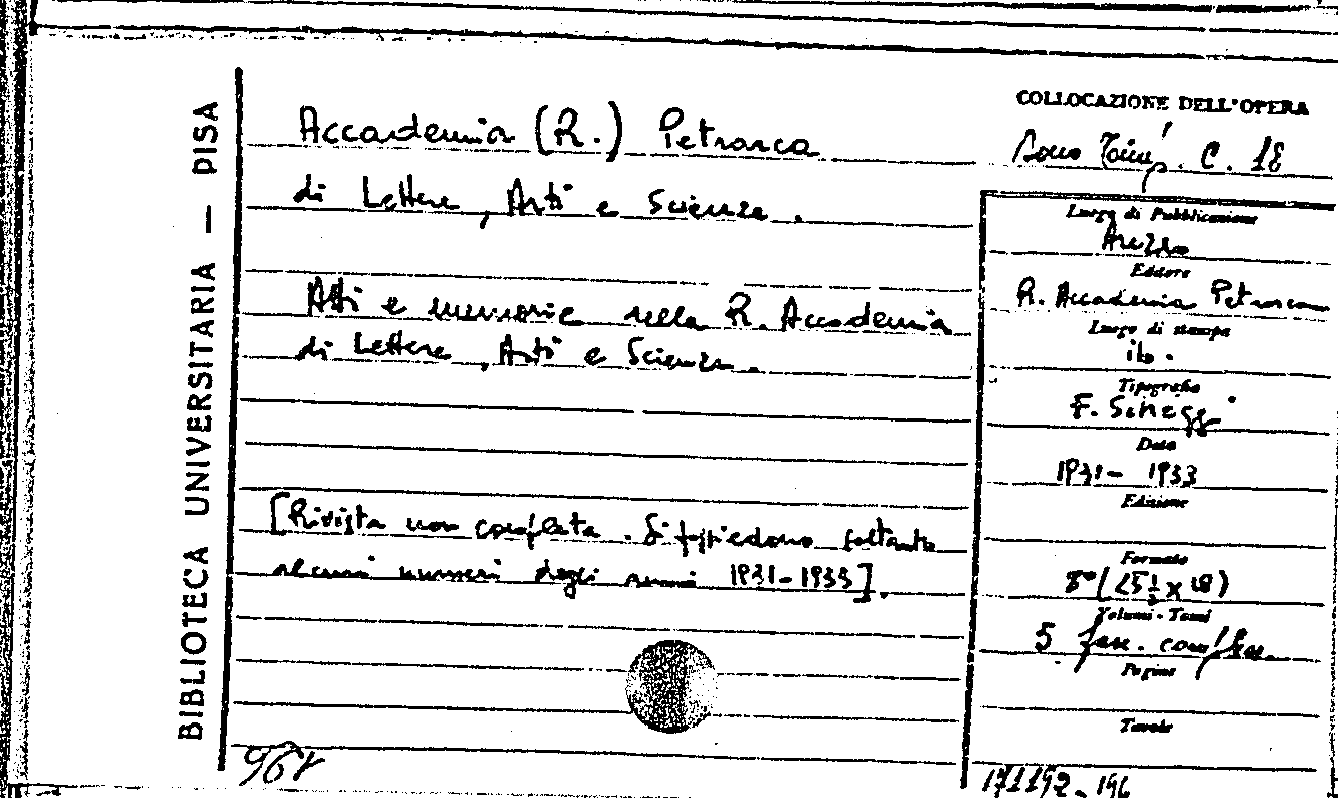 BIBLIOTECA UNIVERSITARIA — PISA
Accademia (R.) Petrarca
di Lettere, Arti e Scienze.
Atti e memorie nella R. Accademia
di Lettere, Arti e Scienze.
[Rivista non completa. Si possiedono soltanto
alcuni numeri degli anni 1931-1933].
968
COLLOCAZIONE DELL'OPERA
C. 18
Luogo di Pubblicazione
Arezzo
Editore
R. Accademia Petrarca
Luogo di stampa
ib.
Tipografia
F. Scheggi
Data
1931-1933
Edizione
Formato
8° (25½ x 18)
Volumi - Tomi
5 fasc.
Pagine
Tavole
171192-196